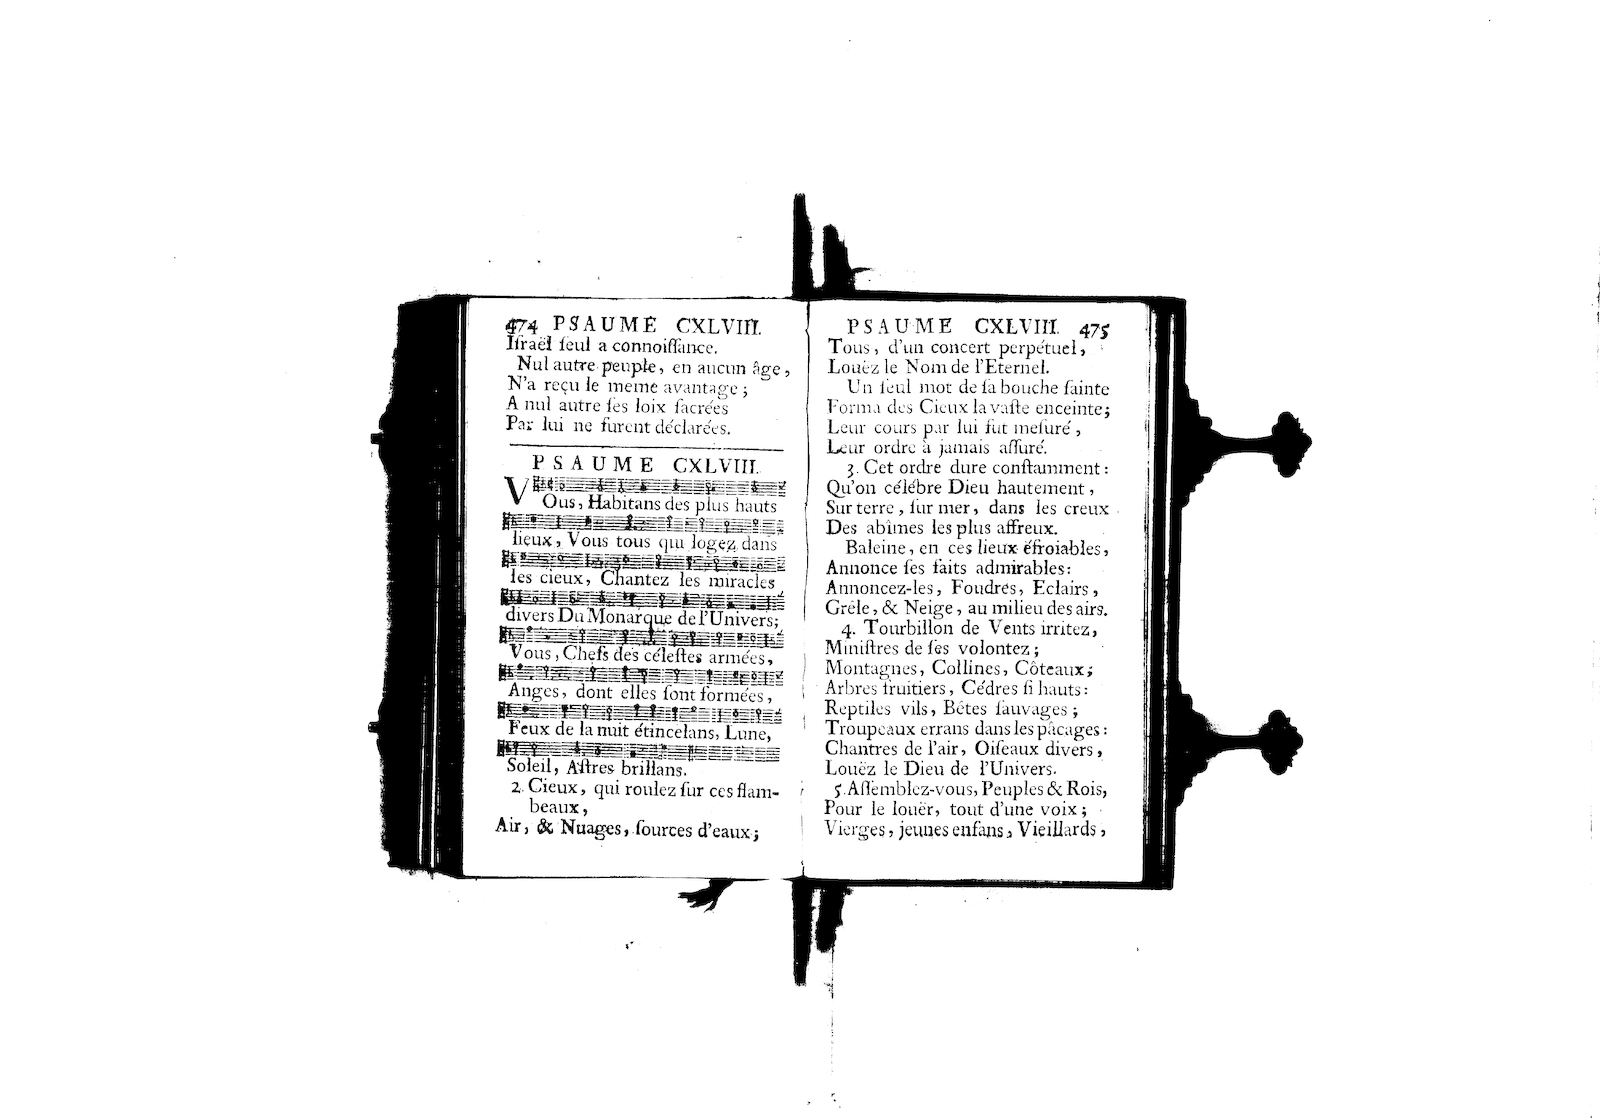 474 PSAUME CXLVIII.
Iſraël ſeul a connoiſſance.
Nul autre peuple, en aucun âge,
N'a reçu le meme avantage;
A nul autre ſes loix ſacrées
Par lui ne furent déclarées.
PSAUME CXLVIII.
VOus, Habitans des plus hauts
lieux, Vous tous qui logez dans
les cieux, Chantez les miracles
divers Du Monarque de l'Univers;
Vous, Chefs des céleſtes armées,
Anges, dont elles ſont formées,
Feux de la nuit étincelans, Lune,
Soleil, Aſtres brillans.
2. Cieux, qui roulez ſur ces flam-
beaux,
Air, & Nuages, ſources d'eaux;
PSAUME CXLVIII. 475
Tous, d'un concert perpétuel,
Louëz le Nom de l'Eternel.
Un ſeul mot de ſa bouche ſainte
Forma des Cieux la vaſte enceinte;
Leur cours par lui fut meſuré,
Leur ordre à jamais aſſuré.
3. Cet ordre dure conſtamment:
Qu'on célébre Dieu hautement,
Sur terre, ſur mer, dans les creux
Des abîmes les plus affreux.
Baleine, en ces lieux éfroiables,
Annonce ſes faits admirables:
Annoncez-les, Foudres, Eclairs,
Gréle, & Neige, au milieu des airs.
4. Tourbillon de Vents irritez,
Miniſtres de ſes volontez;
Montagnes, Collines, Côteaux;
Arbres fruitiers, Cédres ſi hauts:
Reptiles vils, Bétes ſauvages;
Troupeaux errans dans les pâcages:
Chantres de l'air, Oiſeaux divers,
Louëz le Dieu de l'Univers.
5. Aſſemblez-vous, Peuples & Rois,
Pour le louër, tout d'une voix;
Vierges, jeunes enfans, Vieillards,